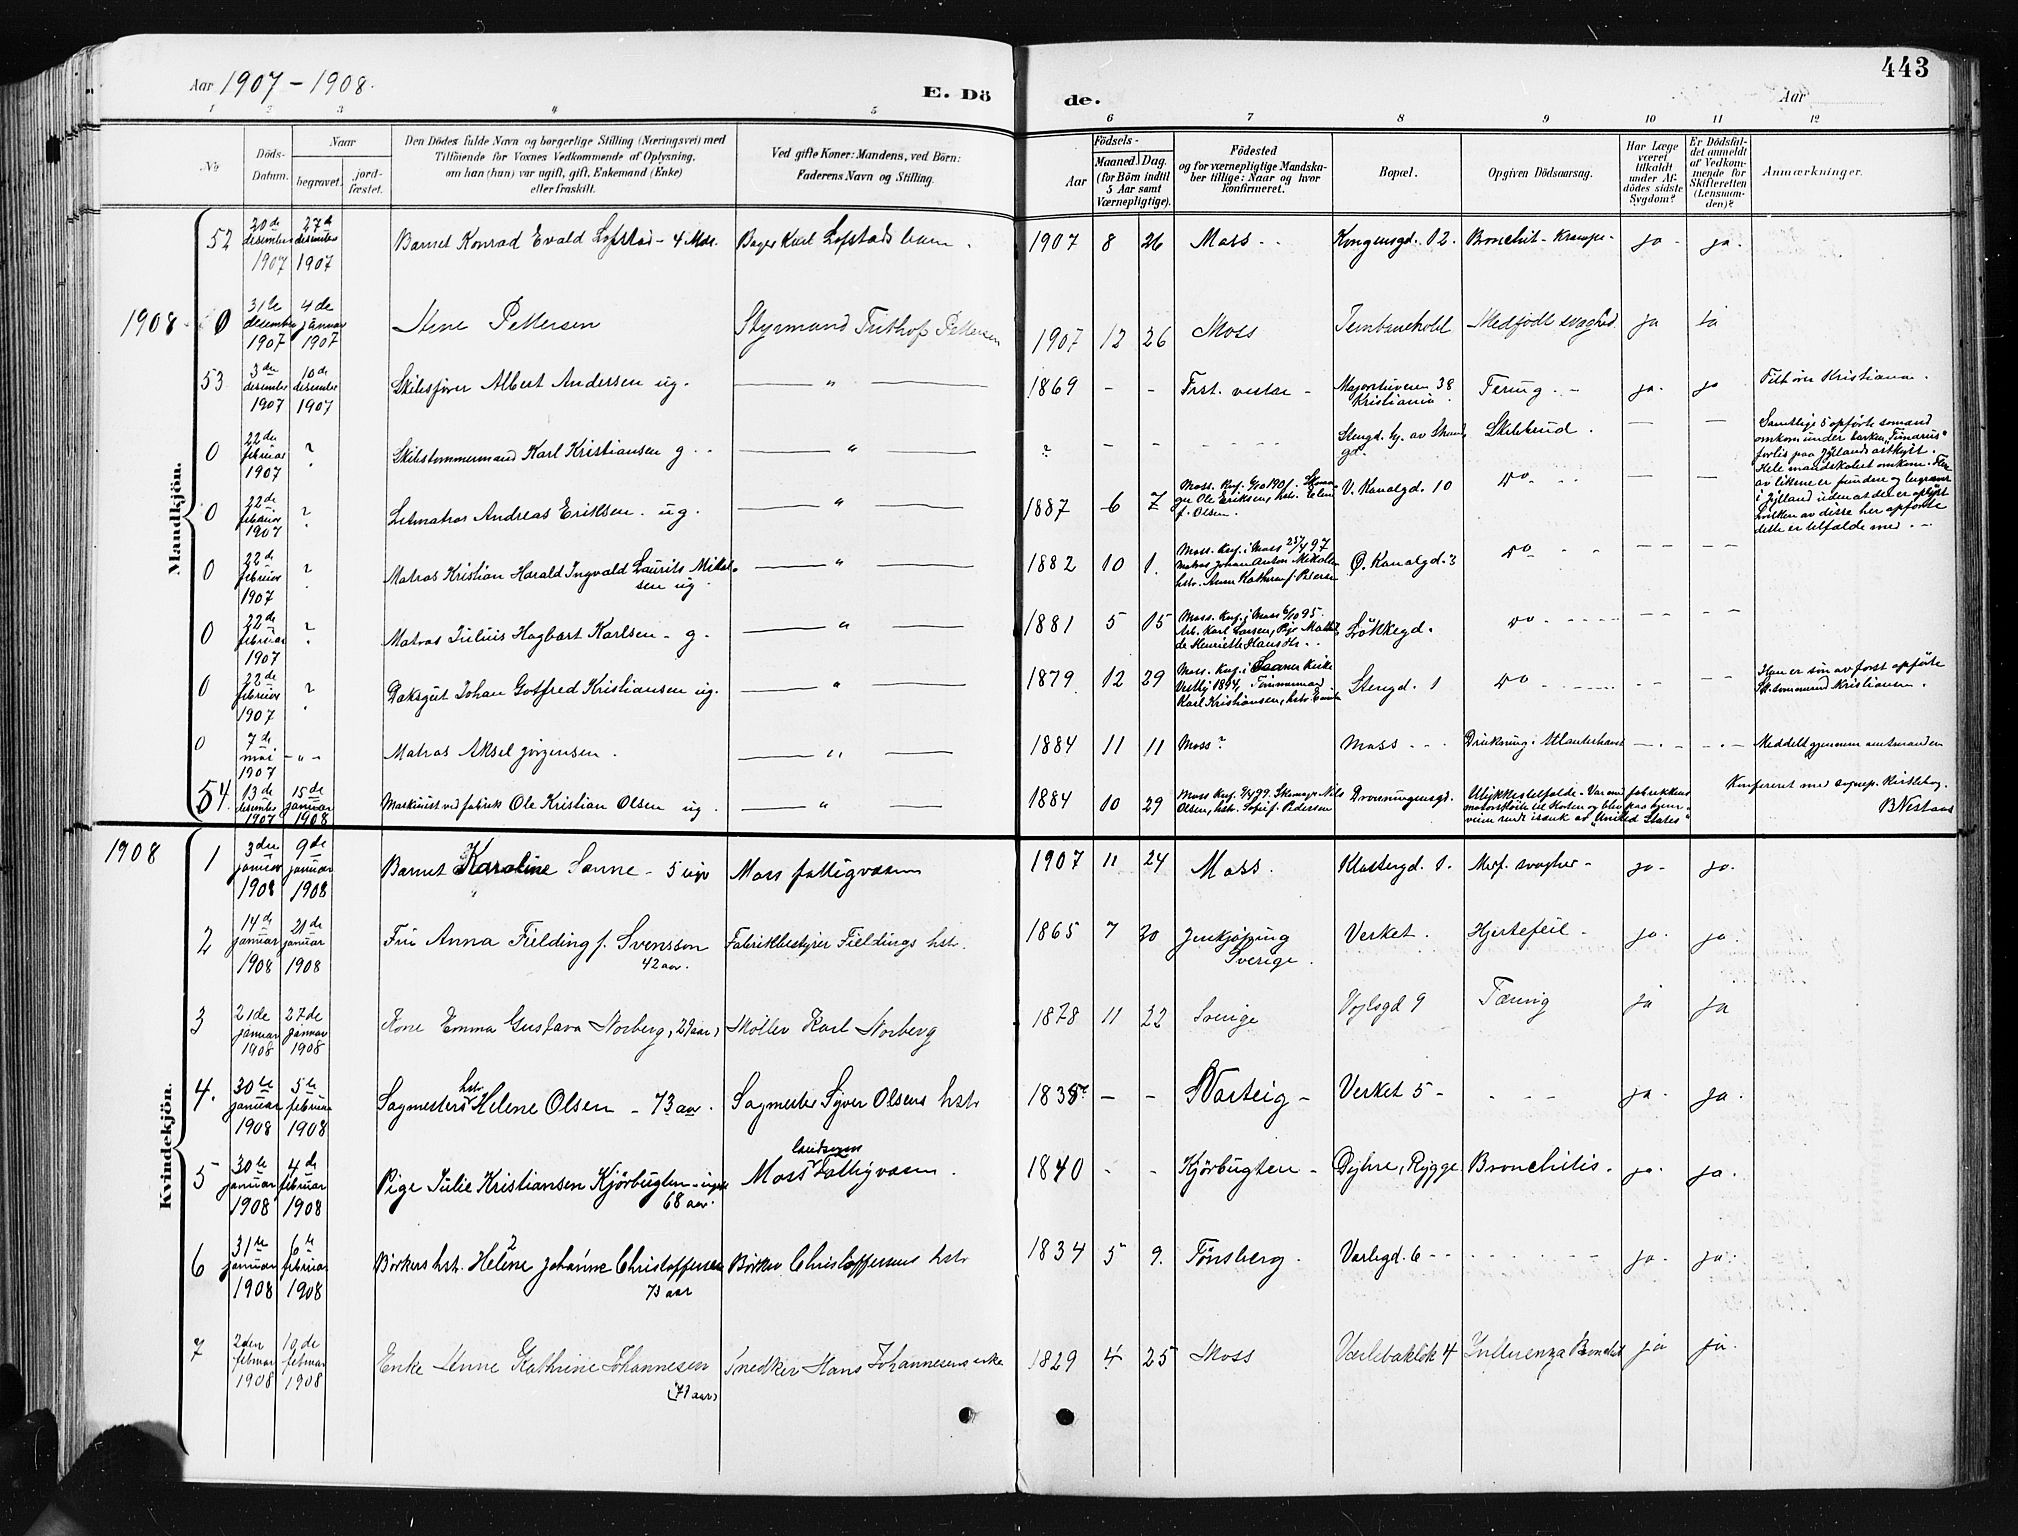 Aar 1907 - 1908.
E. Dö
de.
Aar
443
1 2 3 4 5 6 7 8 9 10 11 12
No.
Döds-Datum.
Naar
begravet.
jord-fæstet.
Den Dödes fulde Navn og borgerlige Stilling (Næringsvei) med
Tilföiende for Voxnes Vedkommende af Oplysning,
om han (hun) var ugift, gift, Enkemand (Enke)
eller fraskilt.
Ved gifte Koner: Mandens, ved Börn:
Faderens Navn og Stilling.
Födsels-
Aar
Maaned. Dag.
(for Börn indtil
5 Aar samt
Værnepligtige).
Födested
og for værnepligtige Mandska-
ber tillige: Naar og hvor
konfirmeret.
Bopæl.
Opgiven Dödsaarsag.
Har Læge
været
tilkaldt
under Af-
dödes sidste
Sygdom?
Er Dödsfal-
det anmeldt
af Vedkom-
mende for
Skifteretten
(Lensman-
den)?
Anmærkninger.
Mandkjön.
52 20de desember 1907 27de desember 1907 Barnet Konrad Evald Lofstad - 4 Mdr. Bager Karl Lofstads barn. 1907 8 26 Moss - - Kongensgd. 12. Bronchit - Krampe - ja - ja -
1908 0 31te desember 1907 4de januar 1907 Arne Pettersen Styrmand Frithof Pettersen 1907 12 26 Moss Jernbanehold Medfödt svaghed ja ja
53 3die desember 1907 10de desember 1907 Skibsförer Albert Andersen ug. " 1869 - - Frst. vestre - Majorstuveien 38 Kristiania Tering - ja - ja Tilh ører Kristiania.
0 22de februar 1907 ? Skibstömmermand Karl Kristiansen g - - " ? - - - - - Stengd. hj. av Strandgd. Skibbrud. - - Samtlige 5 opförte sömænd
omkom under barken "Timarus"
forlis paa Jyllands østkyst.
Hele mandskabet omkom. Flere
av likene er fundne og begravet
i Jylland uden at det er oplyst
hvilken av disse her opförte
dette er tilfælde med. -
0 22de februar 1907 ? Letmatros Andreas Eriksen - ug. " 1887 6 7 V. Kanalgd. 10 Do - -
0 22de februar 1907 ? Matros Kristian Harald Ingvald Laurits Mikalsen ug " 1882 10 1. Moss. Knf. i Moss 25/4 97 Matros Johan Anton Mikalsen hstr. Anne Kathrine f. Petersen Ø. Kanalgd. 3 Do - -
0 22de februar 1907 ? Matros Julius Hagbart Karlsen - g. " 1881 5 15 Moss. Knf. i Moss 6/10 95. Arb. Karl Larsen, Pige Mathilde Henriette Hansdtr. Løkkegd. Do - -
0 22de februar 1907 ? Dæksgut Johan Gotfred Kristiansen ug. " 1879 12 29 Moss. Knf. i Saaner Kirke Vestby 1894, Tömmermand Karl Kristiansen, hstr. Emilie Stengd. 1 Do - - Han er sön av först opförte
Sk.tömmermd Kristiansen.
0 7de mai 1907 - " - Matros Aksel Jörgensen. " 1884 11 11 Moss? Moss - - Drukning i Atlanterhavet - - Meddelt gjennem amtmanden
54. 13de desember 1907 15de januar 1908 Maskinist ved fabrik Ole Kristian Olsen ug. " 1884 10 29 Moss Knf. Skomager Nils Olsen, hstr. Sofie f. Pedersen Dronningensgd. Ulykkestilfælde. Var med fabrikkens
motorskøite til Horten og blev paa hjem-
veien rendt i sænk av "United States"
Konfereret med sognepr. Kirkebog.
B Nestaas
Kvindekjön.
1908 1 3die januar 1908 9de januar 1908 Barnet Karoline Sanne - 5 uger Moss fattigvæsen 1907 11 24 Moss. Klostergd. 1. Medf. svaghet - ja - ja.
2 14de januar 1908 21de januar 1908 Fru Anna Fielding f. Svensson 42 aar. Fabrikbestyrer Fieldings hstr. 1865 7 30 Jenkjöping Sverige. Verket. Hjertefeil - ja. ja.
3 21de januar 1908 27de januar 1908 Kone Emma Gustava Norberg, (29 aar) Møller Karl Norberg 1878 11 22 Sverige Vogtsgd 9 Tæring ja ja
4. 30te januar 1908 5te februar 1908 Sagmesters hstr Helene Olsen - 73 aar. Sagmester Syver Olsens hstr 1835? - - Varteig - Verket 5 - - - - ja. ja.
5 30te januar 1908 4de februar 1908 Pige Julie Kristiansen Kjörbugten - ugift 68 aar. Moss landsogns fattigvæsen. 1840 - - Kjörbugten - Dyhre, Rygge Bronchitis. ja. ja.
6 31te januar 1908 6te februar 1908 Bödkers hst. Helene Johanne Christoffersen 73 aar Bödker Christoffersens hstr 1834 5 9. Tönsberg. Varlegd. 6 - - - - - - ja. ja.
7 2den februar 1908 10de februar 1908 Enke Anne Kathrine Johannesen Snedker Hans Johannesens enke 1829 4 25 Moss Værlebakken 4 Influenza Bronchit ja ja.